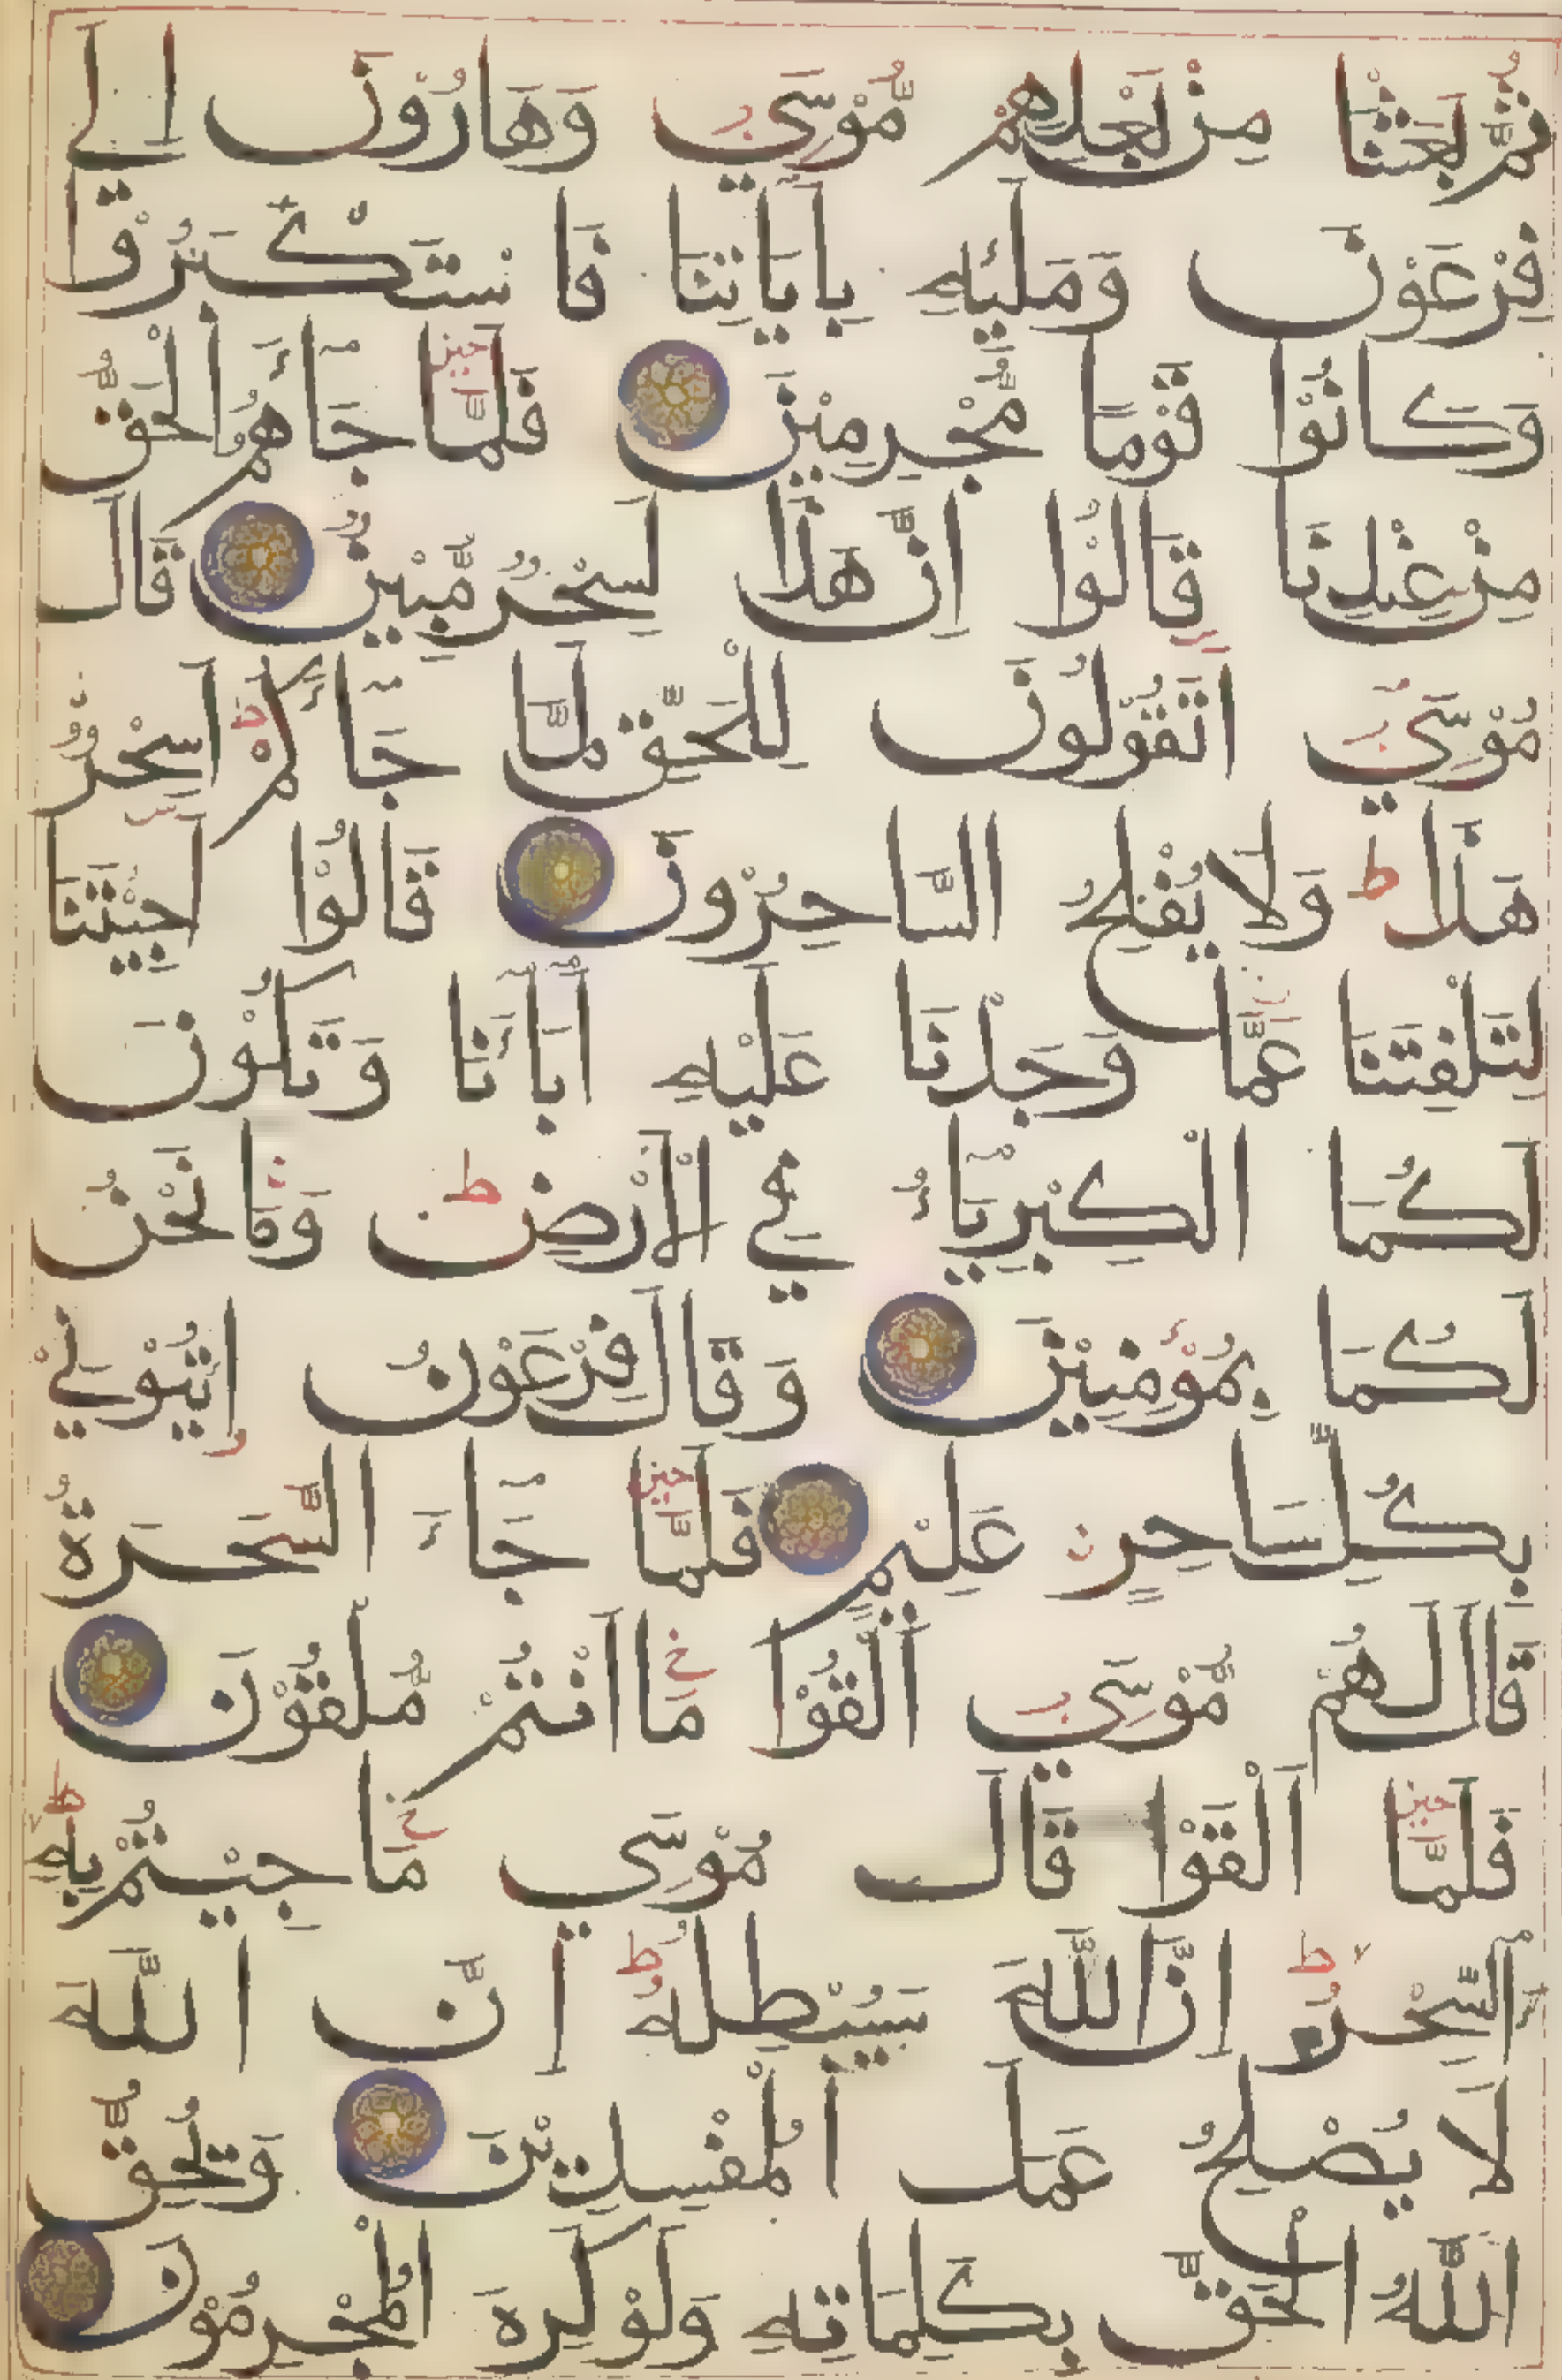 ثُمَّ بَعَثْنَا مِنْ بَعْدِهِمْ مُّوْسَى وَهَارُوْنَ اِلَى
فِرْعَوْنَ وَمَلَئِهِ بِاٰيَاتِنَا فَاسْتَكْبَرُوْا
وَكَانُوْا قَوْمًا مُّجْرِمِيْنَ فَلَمَّا جَآءَهُمُ الْحَقُّ
مِنْ عِنْدِنَا قَالُوْا اِنَّ هٰذَا لَسِحْرٌ مُّبِيْنٌ قَالَ
مُوْسَى اَتَقُوْلُوْنَ لِلْحَقِّ لَمَّا جَآءَكُمْ اَسِحْرٌ
هٰذَا ط وَلَا يُفْلِحُ السَّاحِرُوْنَ قَالُوْا اَجِيْتَنَا
لِتَلْفِتَنَا عَمَّا وَجَدْنَا عَلَيْهِ اٰبَآءَنَا وَتَكُوْنَ
لَكُمَا الْكِبْرِيَآءُ فِي الْاَرْضِ ط وَمَا نَحْنُ
لَكُمَا بِمُؤْمِنِيْنَ وَقَالَ فِرْعَوْنُ ائْتُوْنِيْ
بِكُلِّ سَاحِرٍ عَلِيْمٍ فَلَمَّا جَآءَ السَّحَرَةُ
قَالَ لَهُمْ مُّوْسَى اَلْقُوْا مَا اَنْتُمْ مُّلْقُوْنَ
فَلَمَّا اَلْقَوْا قَالَ مُوْسَى مَا جِيْتُمْ بِهِ
السِّحْرُ ط اِنَّ اللّٰهَ سَيُبْطِلُهُ ط اِنَّ اللّٰهَ
لَا يُصْلِحُ عَمَلَ الْمُفْسِدِيْنَ وَيُحِقُّ
اللّٰهُ الْحَقَّ بِكَلِمَاتِهِ وَلَوْ كَرِهَ الْمُجْرِمُوْنَ